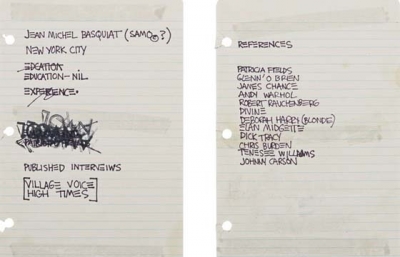 JEAN MICHEL BASQUIAT (SAMO©?)
NEW YORK CITY
EDCATION
EDUCATION-NIL.
EXPERIENCE.
PUBLISHED INTERVEIWS
[VILLAGE VOICE
HIGH TIMES]
REFERENCES
PATRICIA FIELDS
GLENN O BREN
JAMES CHANCE
ANDY WARHOL
ROBERT RAUCHENBERG
DIVINE
DEBORAH HARRY (BLONDE)
ETAN MIDGETTE
DICK TRACY
CHRIS BURDEN
TENESEE WILLIAMS
JOHNNY CARSON